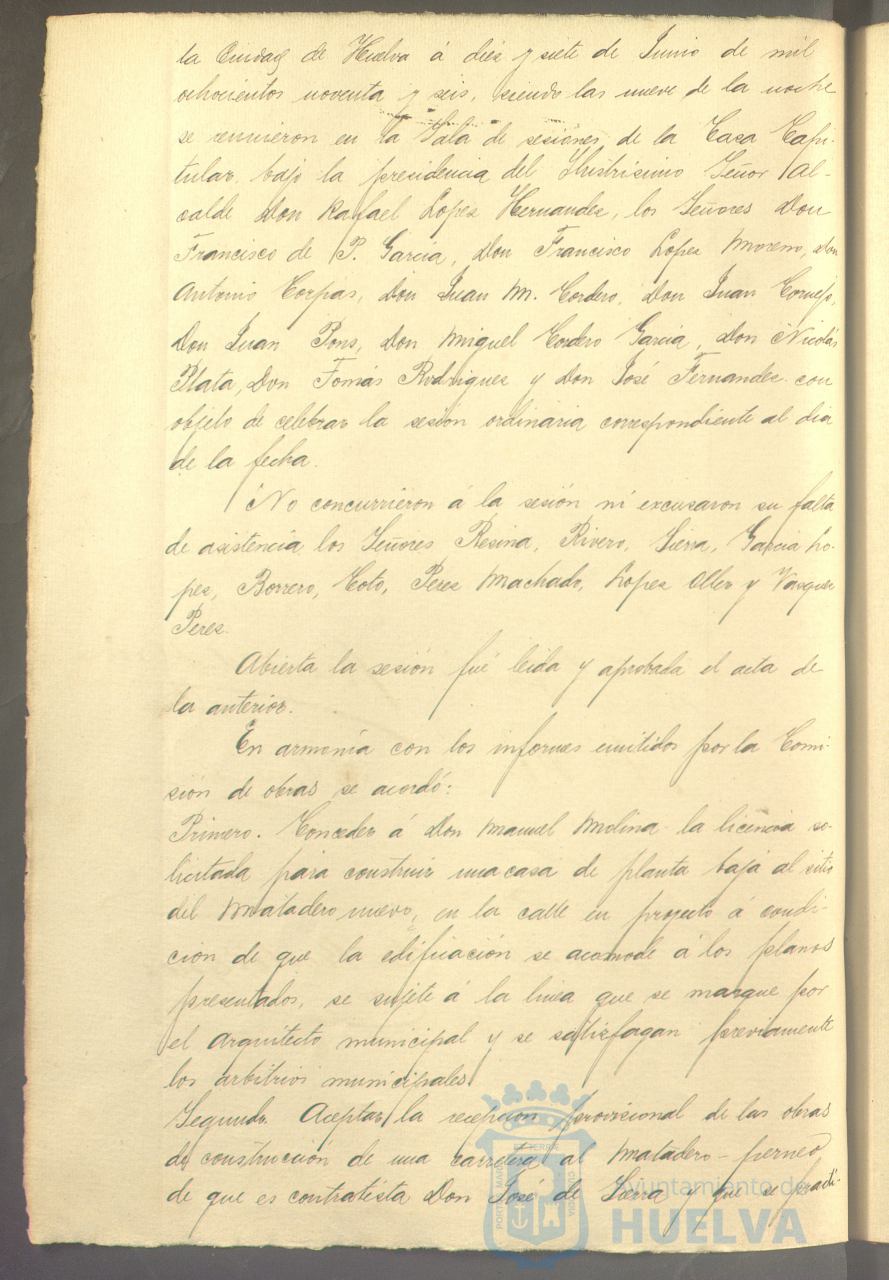 la Ciudad de Huelva á diez y siete de Junio de mil
ochocientos noventa y seis, siendo las nueve de la noche
se reunieron en la Sala de sesiones de la Casa Capi-
tular, bajo la presidencia del Ilustrisimo Señor Al-
calde Don Rafael Lopez Hernandez, los Señores Don
Francisco de P. Garcia, Don Francisco Lopez Moreno, Don
Antonio Corpas, Don Juan M. Cordero, Don Juan Cornejo,
Don Juan Pons, Don Miguel Cordero Garcia, Don Nicolás
Plata, Don Tomás Rodriguez y Don José Fernandez con
objeto de celebrar la sesion ordinaria correspondiente al dia
de la fecha.
No concurrieron á la sesión ni excusaron su falta
de asistencia los Señores Resina, Rivero, Sierra, Garcia Lo-
pez, Borrero, Coto, Perez Machado, Lopez Oller y Vazquez
Perez.
Abierta la sesión fué leida y aprobada el acta de
la anterior.
En armonía con los informes emitidos por la Comi-
sión de obras se acordó:
Primero. Conceder á Don Manuel Molina la licencia so-
licitada para construir una casa de planta baja al sitio
del Matadero nuevo, en la calle en proyecto á condi-
ción de que la edificación se acomode á los planos
presentados, se sujete á la linea que se marque por
el arquitecto municipal y se satisfagan previamente
los arbitrios municipales
Segundo. Aceptar la recepcion provisional de las obras
de construcción de una carretera al Matadero-
de que es contratista Don José de Sierra y que se practi-
Ayuntamiento de
HUELVA